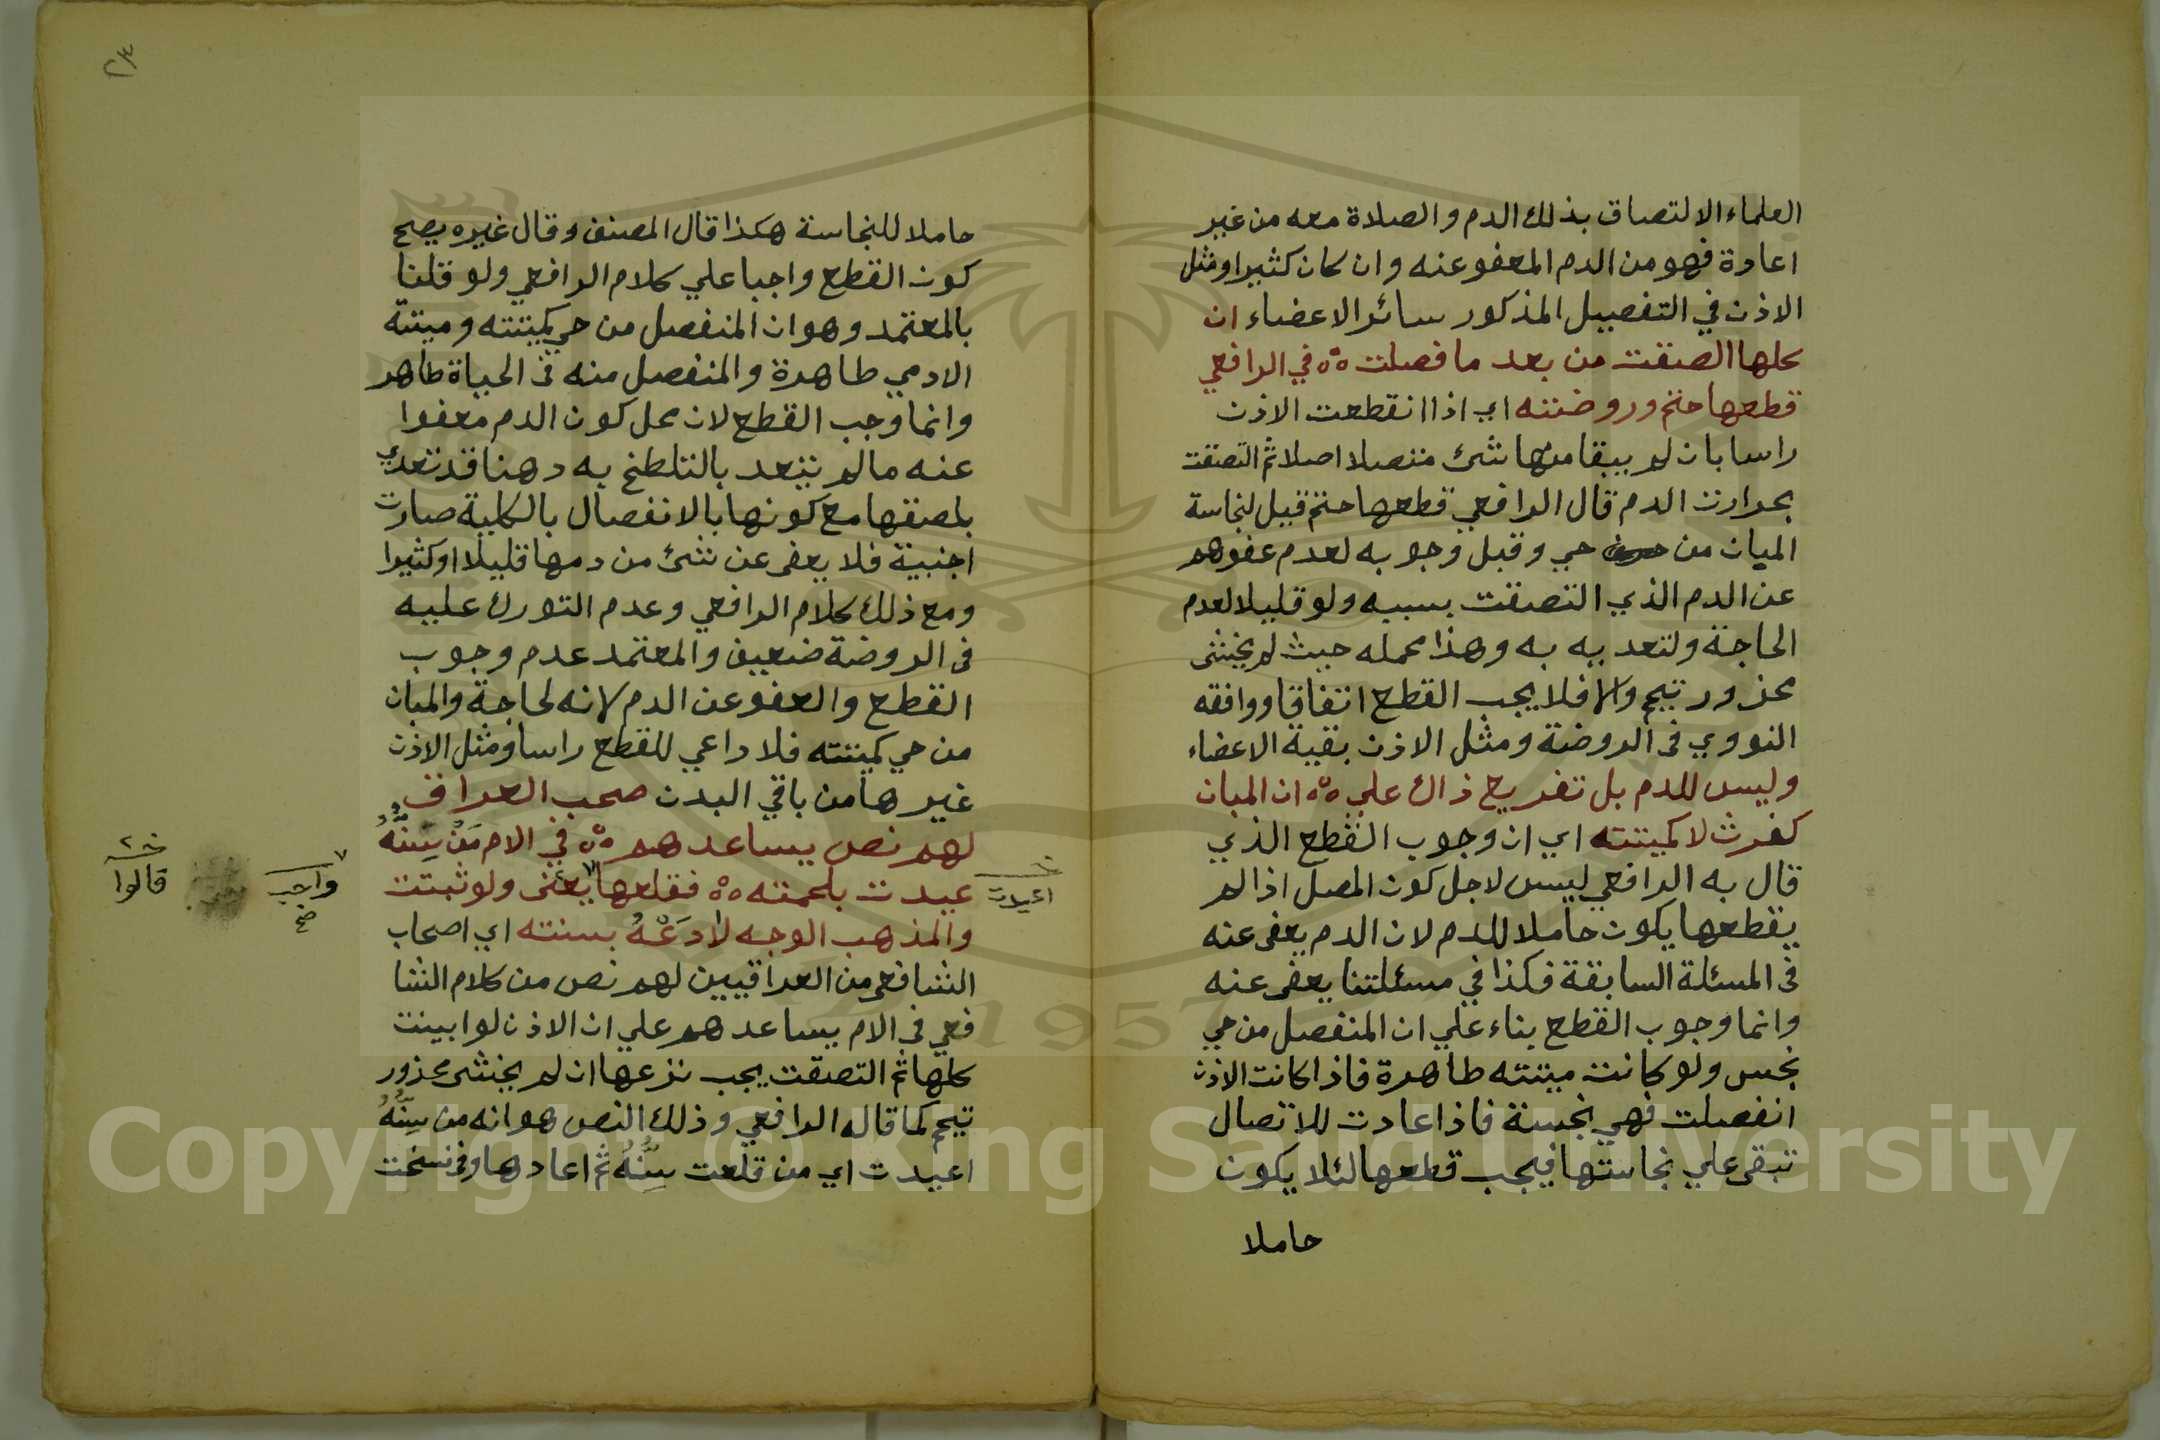 العلماء الالتصاق بذلك الدم والصلاة معه من غير
اعادة فهو من الدم المعفو عنه وان كان كثيرا ومثل
الاذن في التفصيل المذكور سائر الاعضاء ان
كلها التصقت من بعد ما فصلت ٥٥ في الرافعي
قطعها حتم وروضته اي اذا انقطعت الاذن
راسا بان لم يبقا منها شئ متصلا اصلا ثم التصقت
بحرارت الدم قال الرافعي قطعها حتم قيل لنجاسة
المبان من حي وقيل وجوبه لعدم عفوهم
عن الدم الذي التصقت بسببه ولو قليلا لعدم
الحاجة ولتعديه به وهذا محمله حيث لم يخشى
محذور تيمم والا فلا يجب القطع اتفاقا ووافقه
النووي في الروضة ومثل الاذن بقية الاعضاء
وليس للدم بل تفريع ذاك علي ٥٥ ان المبان
كفرث لا كميتته اي ان وجوب القطع الذي
قال به الرافعي ليس لاجل كون المصل اذا لم
يقطعها يكون حاملا للدم لان الدم يعفى عنه
في المسئلة السابقة فكذا في مسئلتنا يعفى عنه
وانما وجوب القطع بناء علي ان المنفصل من حي
نجس ولو كانت ميتته طاهرة فاذا كانت الاذن
انفصلت فهي نجسة فاذا عادت للاتصال
تبقى علي نجاستها فيجب قطعها لئلا يكون
حاملا
٢٤
حاملا للنجاسة هكذا قال المصنف وقال غيره يصح
كون القطع واجبا علي كلام الرافعي ولو قلنا
بالمعتمد وهو ان المنفصل من حي كميتته وميتة
الادمي طاهرة والمنفصل منه في الحياة طاهر
وانما وجب القطع لان محل كون الدم معفوا
عنه ما لم يتعد بالتلطخ به وهنا قد تعدي
بلصقها مع كونها بالانفصال بالكلية صارت
اجنبية فلا يعفى عن شئ من دمها قليلا او كثيرا
ومع ذلك كلام الرافعي وعدم التورك عليه
في الروضة ضعيف والمعتمد عدم وجوب
القطع والعفو عن الدم لانه لحاجة والمبان
من حي كميتته فلا داعي للقطع راسا ومثل الاذن
غيرها من باقي البدن صحب العراق
لهم نص يساعدهم ٥٥ في الام من سنه
عيدت بلحمته ٥٥ فقلعها يعنى ولو ثبتت
والمذهب الوجه لا دعه بسنته اي اصحاب
الشافعي من العراقيين لهم نص من كلام الشا
فعي في الام يساعدهم علي ان الاذن لو ابينت
كلها ثم التصقت يجب نزعها ان لم يخشى محذور
تيمم كما قاله الرافعي وذلك النص هو انه من سنه
اعيدت اي من قلعت سنه ثم اعادها وفي نسخت
اعيدت
واجب
صح
قالوا
Copyright © King Saud University
1957